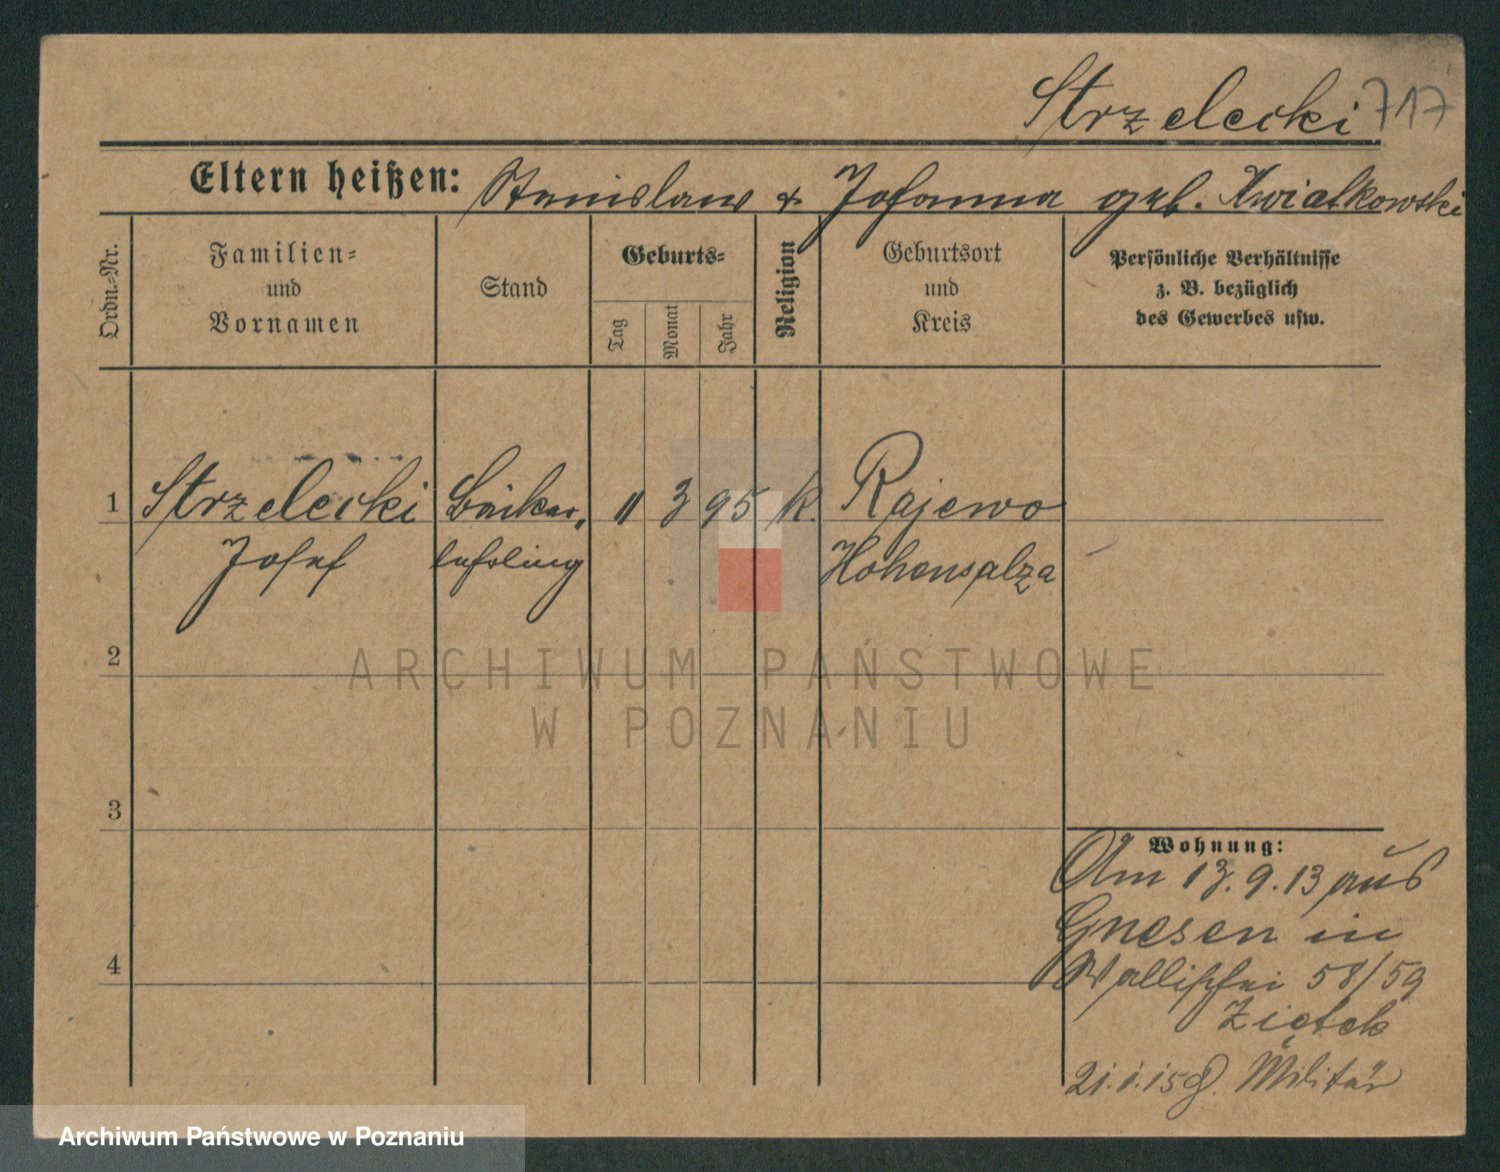 Strzelecki 717
Eltern heißen: Stanislaw & Johanna geb. Kwiatkowski
Ordn.-Nr.
Familien-
und
Vornamen
Stand
Geburts-
Tag
Monat
Jahr
Religion
Geburtsort
und
Kreis
Persönliche Verhältnisse
z. B. bezüglich
des Gewerbes usw.
1 Strzelecki Bäcker, 11 3 95 k. Rajewo
Josef lehrling Hohensalza
2
3
4
ARCHIWUM PAŃSTWOWE
W POZNANIU
Wohnung:
Am 13.9.13 aus
Gnesen in
Wallischei 58/59
Ziętek
21.1.15 Militär
Archiwum Państwowe w Poznaniu